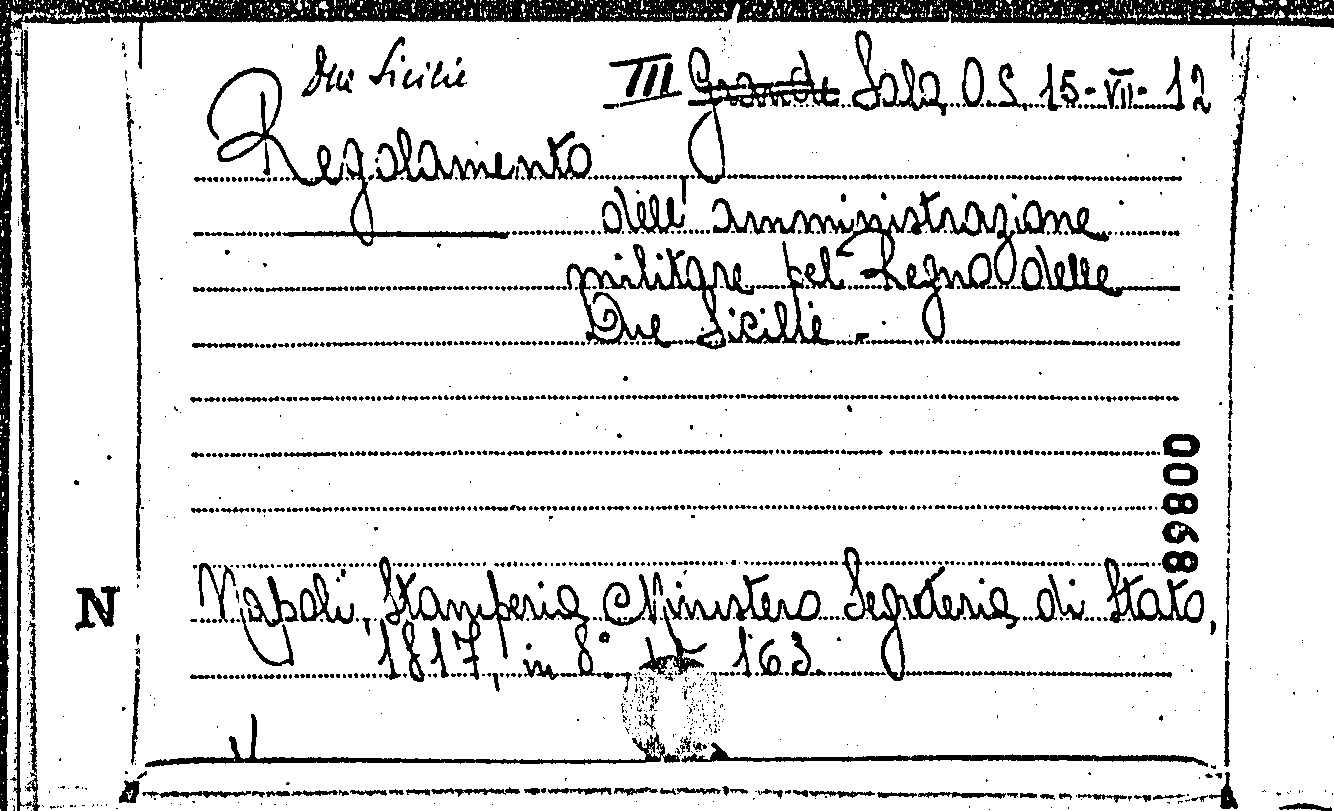 Due Sicilie
III Grande Sala O.S. 15-VII-12
Regolamento
dell'amministrazione
militare pel Regno delle
Due Sicilie.-
00868
N
Napoli, Stamperia Ministero Segreteria di Stato,
1817, in 8° 163.